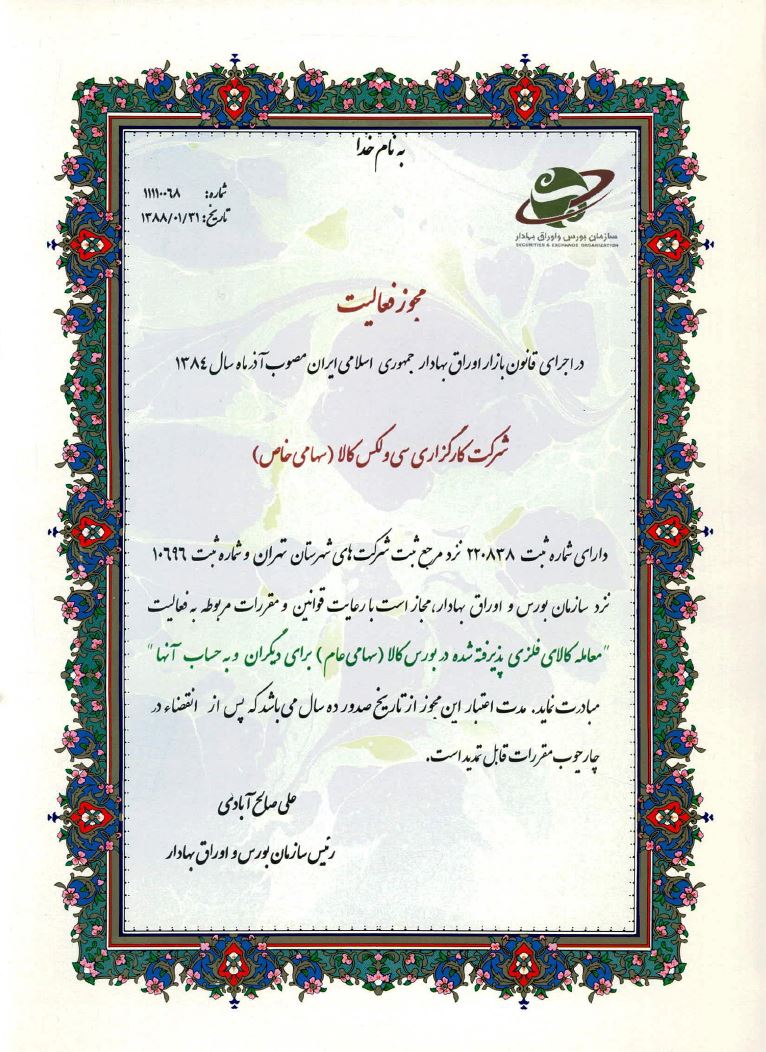 به نام خدا
شماره: ۱۱۱۱۰۰۶۸
تاریخ: ۱۳۸۸/۰۱/۳۱
سازمان بورس و اوراق بهادار
SECURITIES & EXCHANGE ORGANIZATION
مجوز فعالیت
در اجرای قانون بازار اوراق بهادار جمهوری اسلامی ایران مصوب آذر ماه سال ۱۳۸۴
شرکت کارگزاری سی ولکس کالا (سهامی خاص)
دارای شماره ثبت ۲۲۰۸۳۸ نزد مرجع ثبت شرکت های شهرستان تهران و شماره ثبت ۱۰۶۹۶
نزد سازمان بورس و اوراق بهادار، مجاز است با رعایت قوانین و مقررات مربوطه به فعالیت
"معامله کالای فلزی پذیرفته شده در بورس کالا (سهامی عام) برای دیگران و به حساب آنها"
مبادرت نماید. مدت اعتبار این مجوز از تاریخ صدور ده سال می باشد که پس از انقضاء در
چارچوب مقررات قابل تمدید است.
علی صالح آبادی
رئیس سازمان بورس و اوراق بهادار